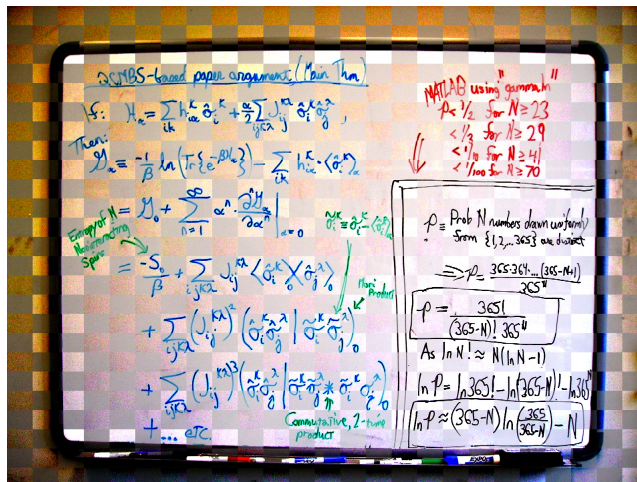 QCMBS-based paper argument (Main Thm)
If: H_α = ∑_{iκ} h_{iα}^κ σ̂_i^κ + α/2 ∑_{ijκλ} J_{ij}^{κλ} σ̂_i^κ σ̂_j^λ ,
Then:
G_α = -1/β ln(Tr{e^{-βH_α}}) - ∑_{iκ} h_{iα}^κ · ⟨σ̂_i^κ⟩_α
= G_0 + ∑_{n=1}^∞ α^n · ∂^n G_α / ∂α^n |_{α=0}
Entropy of N
Noninteracting
Spins
σ̃_i^κ ≡ σ̂_i^κ - ⟨σ̂_i^κ⟩_0
= -S_0/β + ∑_{ijκλ} J_{ij}^{κλ} ⟨σ̂_i^κ⟩⟨σ̂_j^λ⟩_0
Mori Product
+ ∑_{ijκλ} (J_{ij}^{κλ})^2 (σ̃_i^κ σ̃_j^λ | σ̃_i^κ σ̃_j^λ)_0
+ ∑_{ijκλ} (J_{ij}^{κλ})^3 (σ̃_i^κ σ̃_j^λ | σ̃_i^κ σ̃_j^λ * σ̃_i^κ σ̃_j^λ)_0
Commutative, 2-time
product
+ ... etc.
MATLAB using "gammaln"
P < 1/2 for N ≥ 23
< 1/3 for N ≥ 29
< 1/10 for N ≥ 41
< 1/100 for N ≥ 70
P ≡ Prob N numbers drawn uniformly
from {1,2,...365} are distinct
⇒ P = 365·364·...(365-N+1) / 365^N
P = 365! / (365-N)! 365^N
As ln N! ≈ N(ln N - 1)
ln P = ln 365! - ln(365-N)! - ln 365^N
ln P ≈ (365-N) ln(365/365-N) - N
EXPO